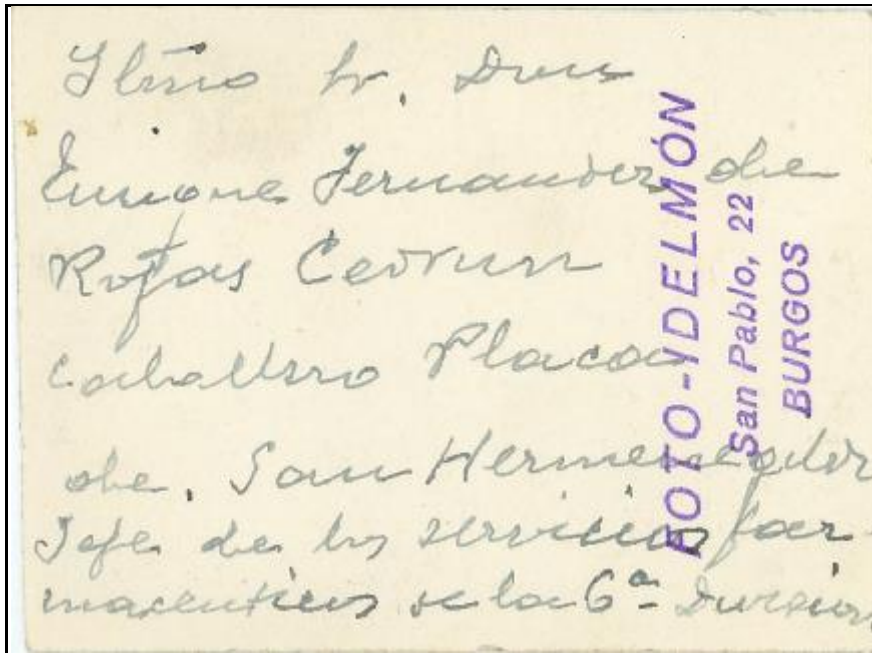 Ilmo Sr. Don
Enrique Fernandez de
Rojas Cedrun
Caballero Placa
de. San Hermenegildo
Jefe de los servicios far-
maceuticos de la 6ª Division
FOTO-IDELMÓN
San Pablo, 22
BURGOS